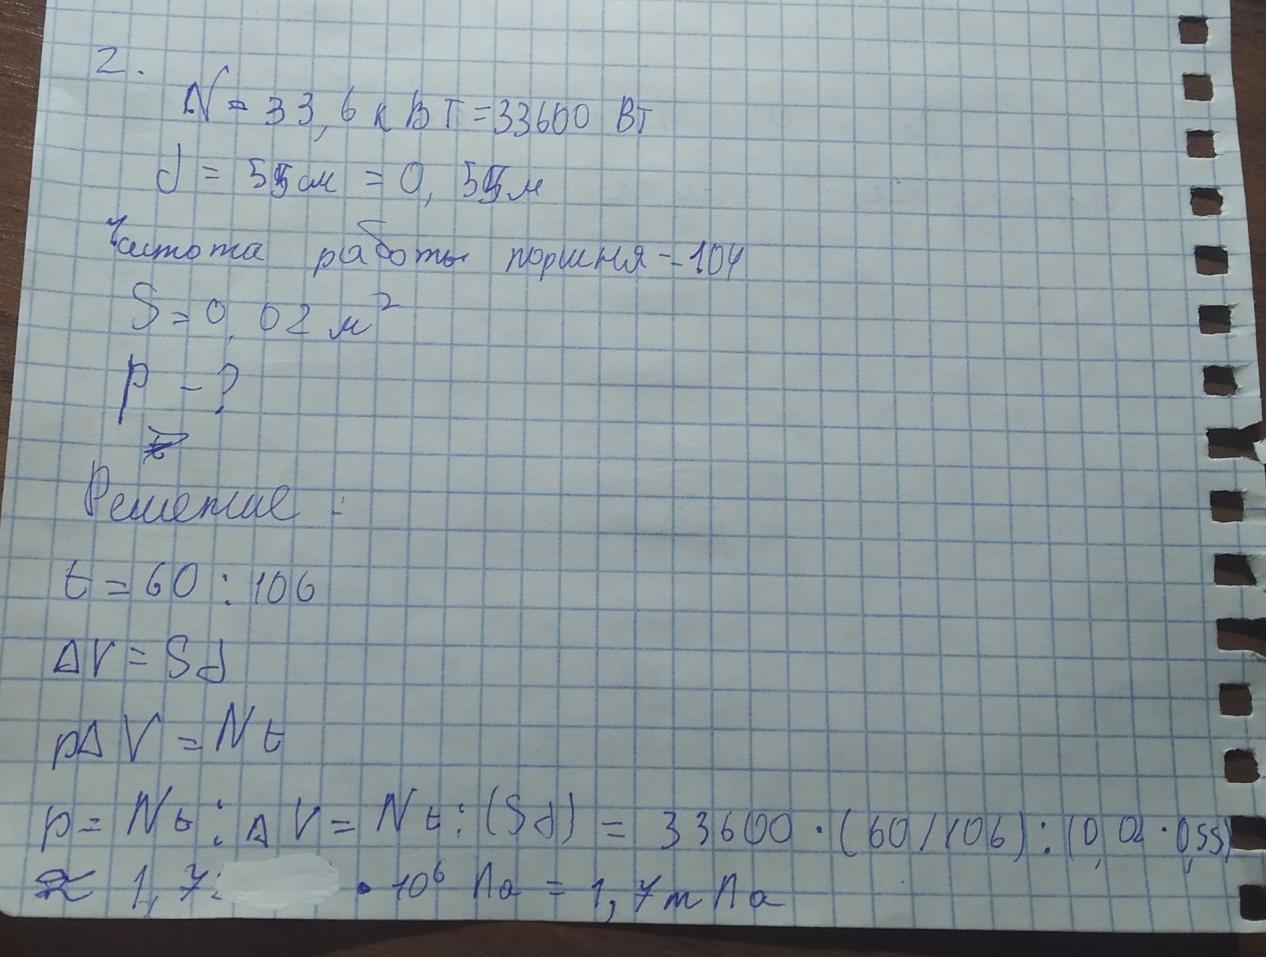 2.
N = 33,6 кВт = 33600 Вт
d = 55 см = 0,55 м
Частота работы поршня - 104
S = 0,02 м²
p - ?
Решение :
t = 60 : 106
ΔV = Sd
pΔV = Nt
p = Nt : ΔV = Nt : (Sd) = 33600 · (60/106) : (0,02 · 0,55)
≈ 1,7 · 10⁶ Па = 1,7 мПа